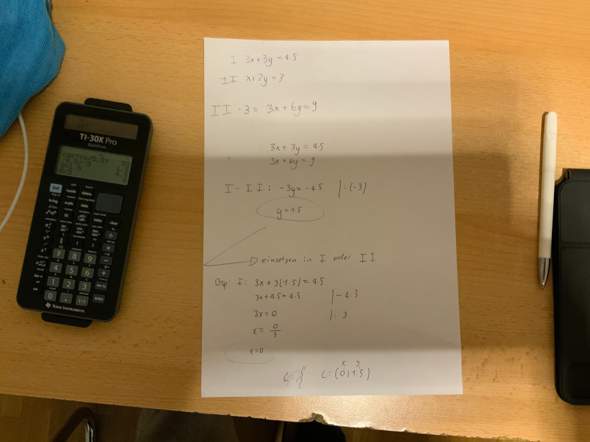 I 3x+3y=4.5
II x+2y=3
II · 3 = 3x+6y=9
3x+3y=4.5
3x+6y=9
I-II: -3y=-4.5 |:(-3)
y=1.5
einsetzen in I oder II
I: 3x+3(1.5)=4.5
3x+4.5=4.5 |-4.5
3x=0 |:3
x=0/3
x=0
x y
L:{ L:(0|1.5)
TI-30X Pro
TEXAS INSTRUMENTS